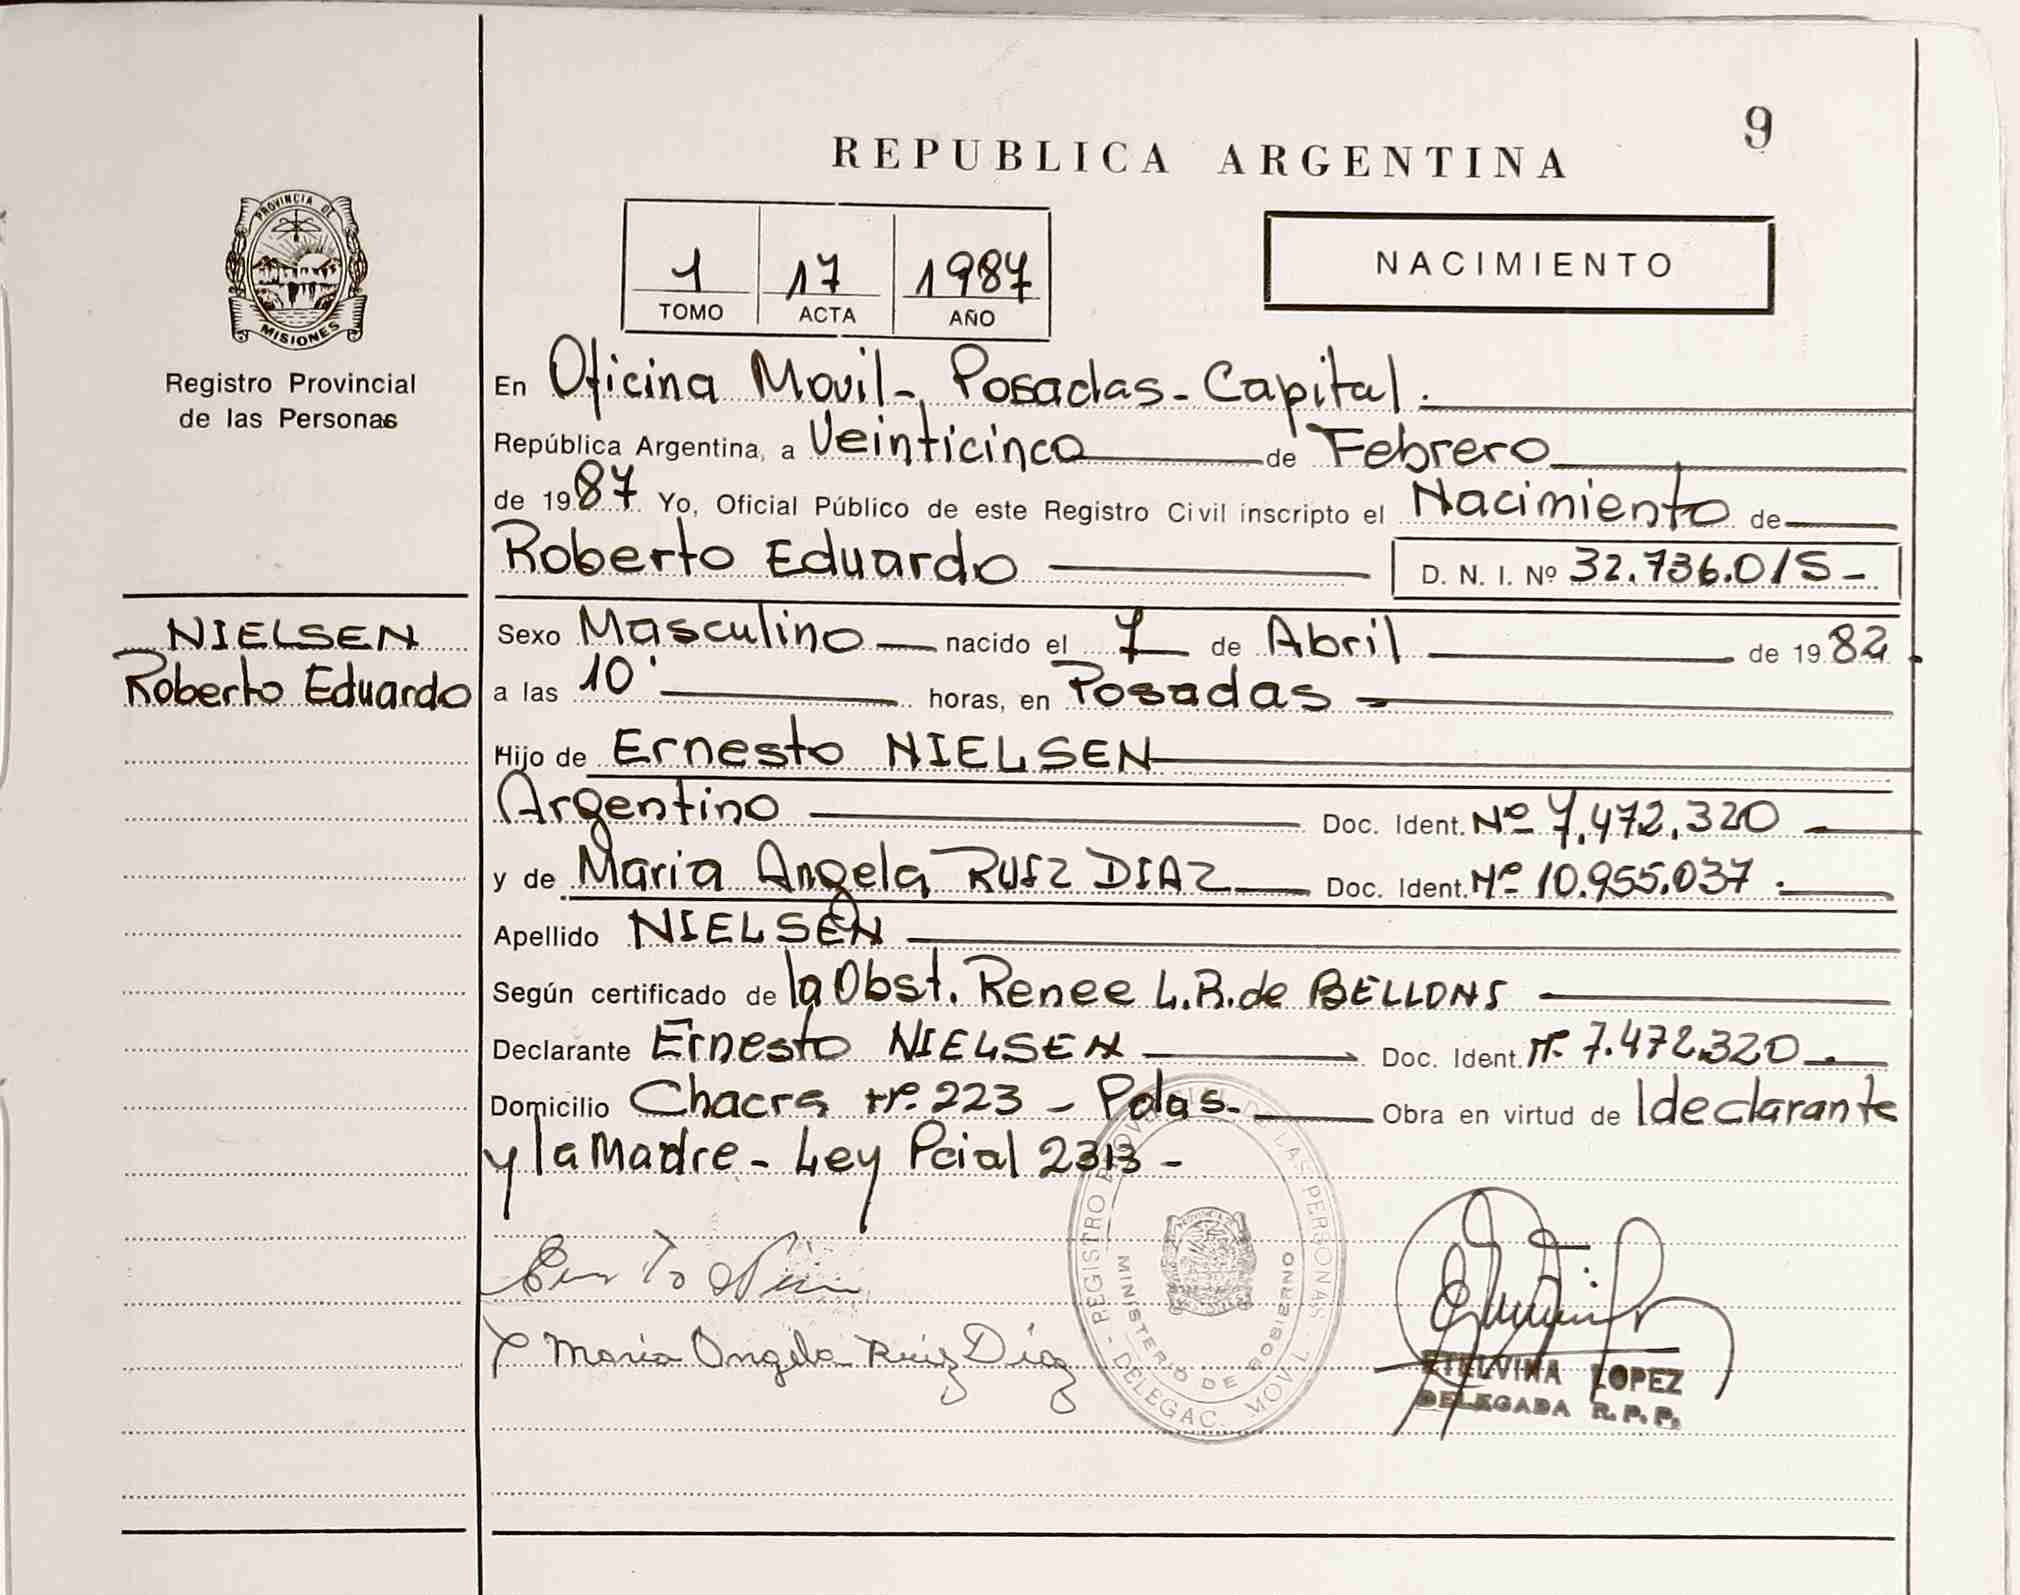 9
REPUBLICA ARGENTINA
PROVINCIA DE
MISIONES
Registro Provincial
de las Personas
1 17 1987
TOMO ACTA AÑO
NACIMIENTO
En Oficina Movil-, Posadas- Capital.
República Argentina, a Veinticinco de Febrero
de 1987 Yo, Oficial Público de este Registro Civil inscripto el Nacimiento de
Roberto Eduardo D. N. I. Nº 32.736.015-
NIELSEN
Roberto Eduardo
Sexo Masculino nacido el 7 de Abril de 1982
a las 10 horas, en Posadas
Hijo de Ernesto NIELSEN
Argentino Doc. Ident. Nº 7.472.320
y de Maria Angela RUIZ DIAZ Doc. Ident. Nº 10.955.037.
Apellido NIELSEN
Según certificado de la Obst. Renee L.R. de BELLONS
Declarante Ernesto NIELSEN Doc. Ident. Nº 7.472.320.
Domicilio Chacra nº 223 - Pdas. Obra en virtud de ldeclarante
y la Madre - Ley Pcial 2313 -
Maria Angela Ruiz Diaz
REGISTRO PROVINCIAL DE LAS PERSONAS - DELEGAC. MOVIL -
MINISTERIO DE GOBIERNO
ETELVINA LOPEZ
DELEGADA R.P.P.